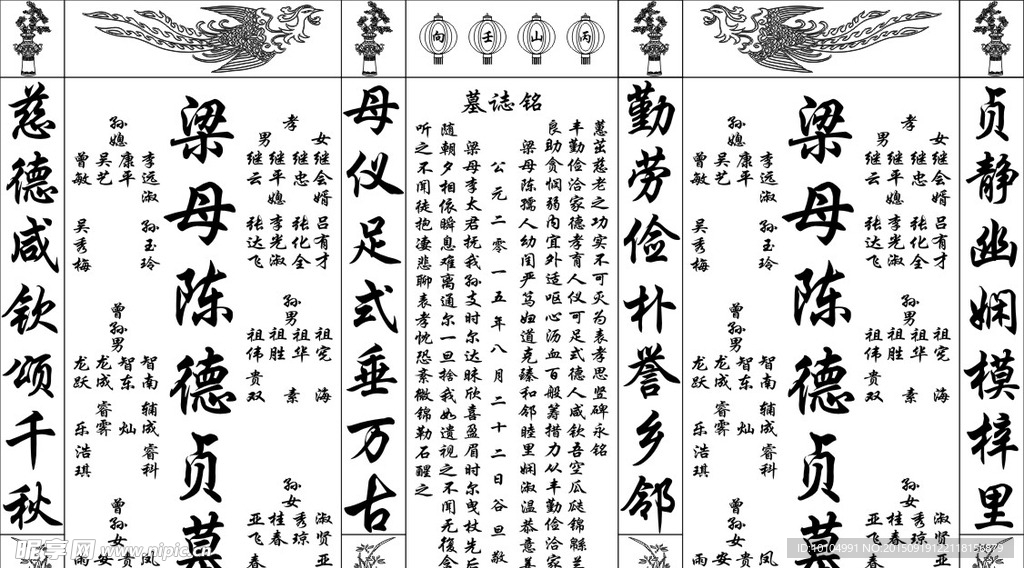 丙山壬向
墓誌铭
贞静幽娴模梓里
勤劳俭朴誉乡邻
母仪足式垂万古
慈德咸钦颂千秋
梁母陈德贞墓
孝
男
女
继云
继平媳
继忠
继会婿
张达飞
李光淑
张化全
吕有才
孙男
祖伟
祖胜
祖华
祖宪
贵双
素
海
孙女
亚飞
桂春
秀琼
淑贤
春
亚
孙媳
曾敏
吴艺
康平
李远淑
吴秀梅
孙玉玲
曾孙男
龙跃
龙成
智东
智南
睿霁
灿
辅成
乐浩琪
睿科
曾孙女
雨
安
贵
凤
梁母陈孺人幼闺严笃妞道克臻和邻睦里娴淑温恭意
良助贪悯弱内宜外适呕心沥血百般筹措力从丰勤俭洽家
丰勤俭洽家德孝育人仪可足式德人咸钦吾空瓜瓞锦緜兰
蕙茁慈老之功实不可灭为表孝思竖碑永铭
公元二零一五年八月二十二日谷旦敬
梁母李太君抚我孙支时尔达昧欣喜盈眉时尔曳杖先后
随朝夕相依瞬息难离通尔一旦捨我如遗视之不闻无復念
听之不闻徒抱凄悲聊表孝忱恐紊微锦勒石醒之
梁母陈德贞墓
孝
男
女
继云
继平媳
继忠
继会婿
张达飞
李光淑
张化全
吕有才
孙男
祖伟
祖胜
祖华
祖宪
贵双
素
海
孙女
亚飞
桂春
秀琼
淑贤
春
亚
孙媳
曾敏
吴艺
康平
李远淑
吴秀梅
孙玉玲
曾孙男
龙跃
龙成
智东
智南
睿霁
灿
辅成
乐浩琪
睿科
曾孙女
雨
安
贵
凤
昵享网 www.nipic.cn